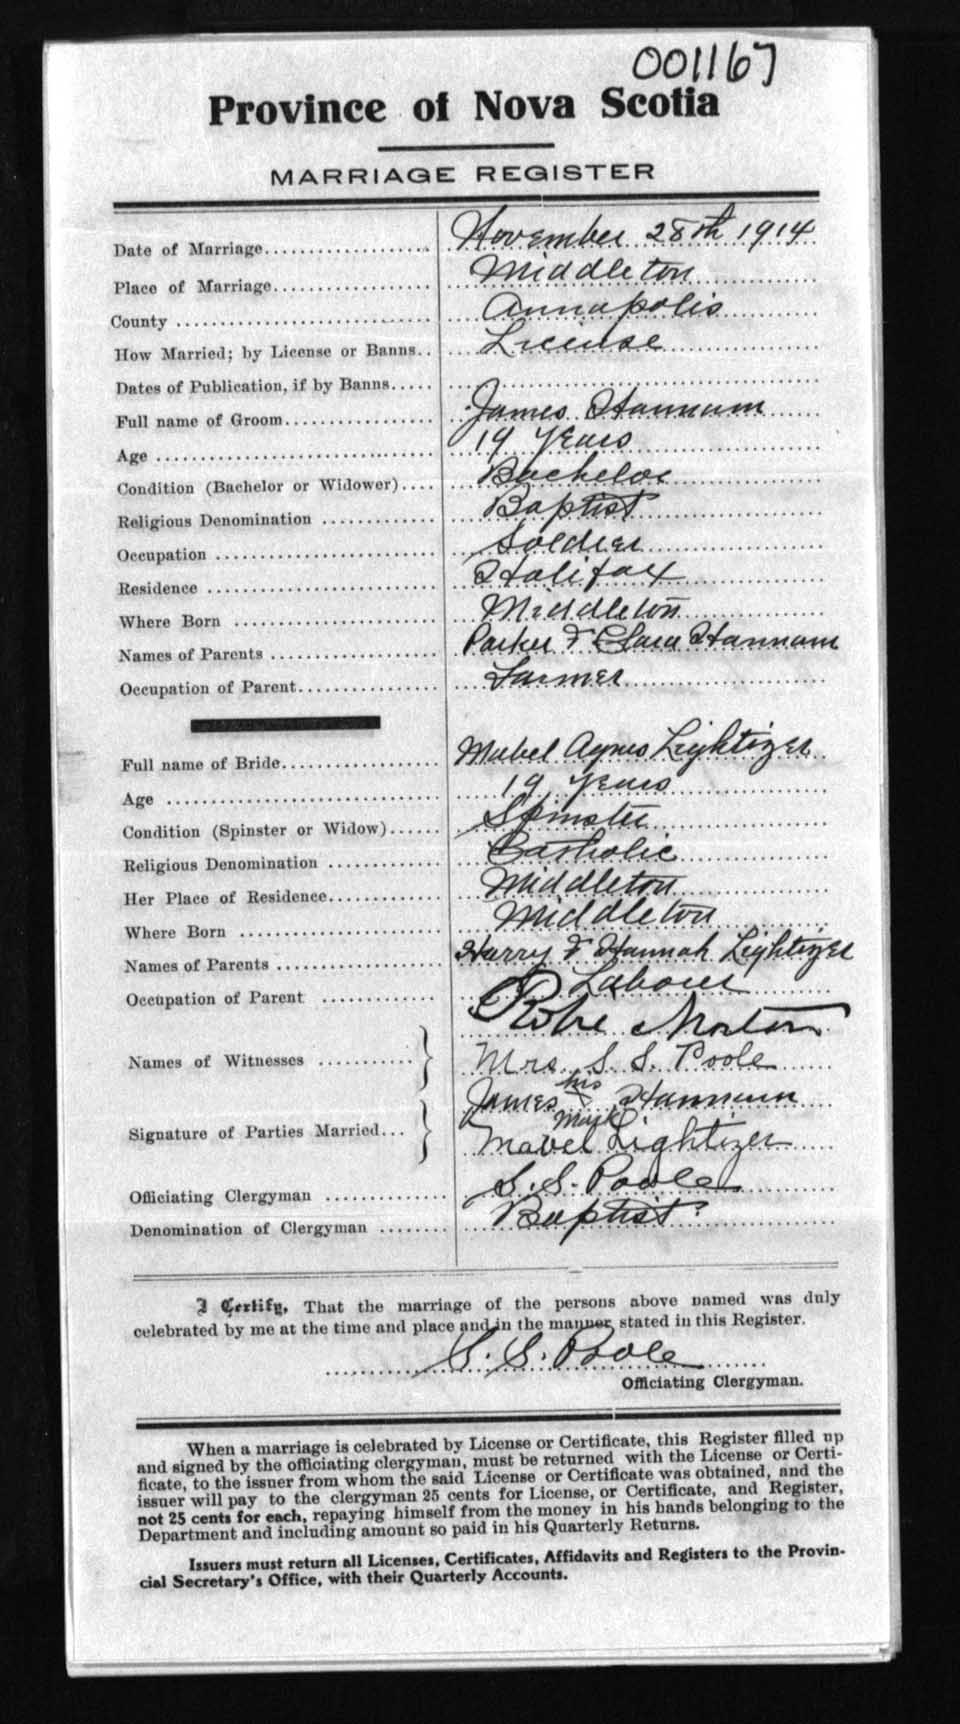 001167
Province of Nova Scotia
MARRIAGE REGISTER
Date of Marriage.................... November 28th 1914
Place of Marriage................... Middleton
County ............................. Annapolis
How Married; by License or Banns.. License
Dates of Publication, if by Banns.....
Full name of Groom................. James Hannam
Age ................................ 19 years
Condition (Bachelor or Widower).... Bachelor
Religious Denomination ............. Baptist
Occupation ......................... Soldier
Residence .......................... Halifax
Where Born ........................ Middleton
Names of Parents ................... Parker & Clara Hannam
Occupation of Parent................ Farmer
Full name of Bride................... Mabel Agnes Lightizer
Age ................................ 19 years
Condition (Spinster or Widow)...... Spinster
Religious Denomination ............. Catholic
Her Place of Residence.............. Middleton
Where Born ........................ Middleton
Names of Parents ................... Harry & Hannah Lightizer
Occupation of Parent ............. Laborer
Names of Witnesses ........... } Robe Morton
Mrs. S. S. Poole
Signature of Parties Married... } James his mark X Hannam
Mabel Lightizer
Officiating Clergyman .............. S. S. Poole
Denomination of Clergyman ........ Baptist
I Certify, That the marriage of the persons above named was duly
celebrated by me at the time and place and in the manner stated in this Register.
S. S. Poole
Officiating Clergyman.
When a marriage is celebrated by License or Certificate, this Register filled up
and signed by the officiating clergyman, must be returned with the License or Certi-
ficate, to the issuer from whom the said License or Certificate was obtained, and the
issuer will pay to the clergyman 25 cents for License, or Certificate, and Register,
not 25 cents for each, repaying himself from the money in his hands belonging to the
Department and including amount so paid in his Quarterly Returns.
Issuers must return all Licenses, Certificates, Affidavits and Registers to the Provin-
cial Secretary's Office, with their Quarterly Accounts.